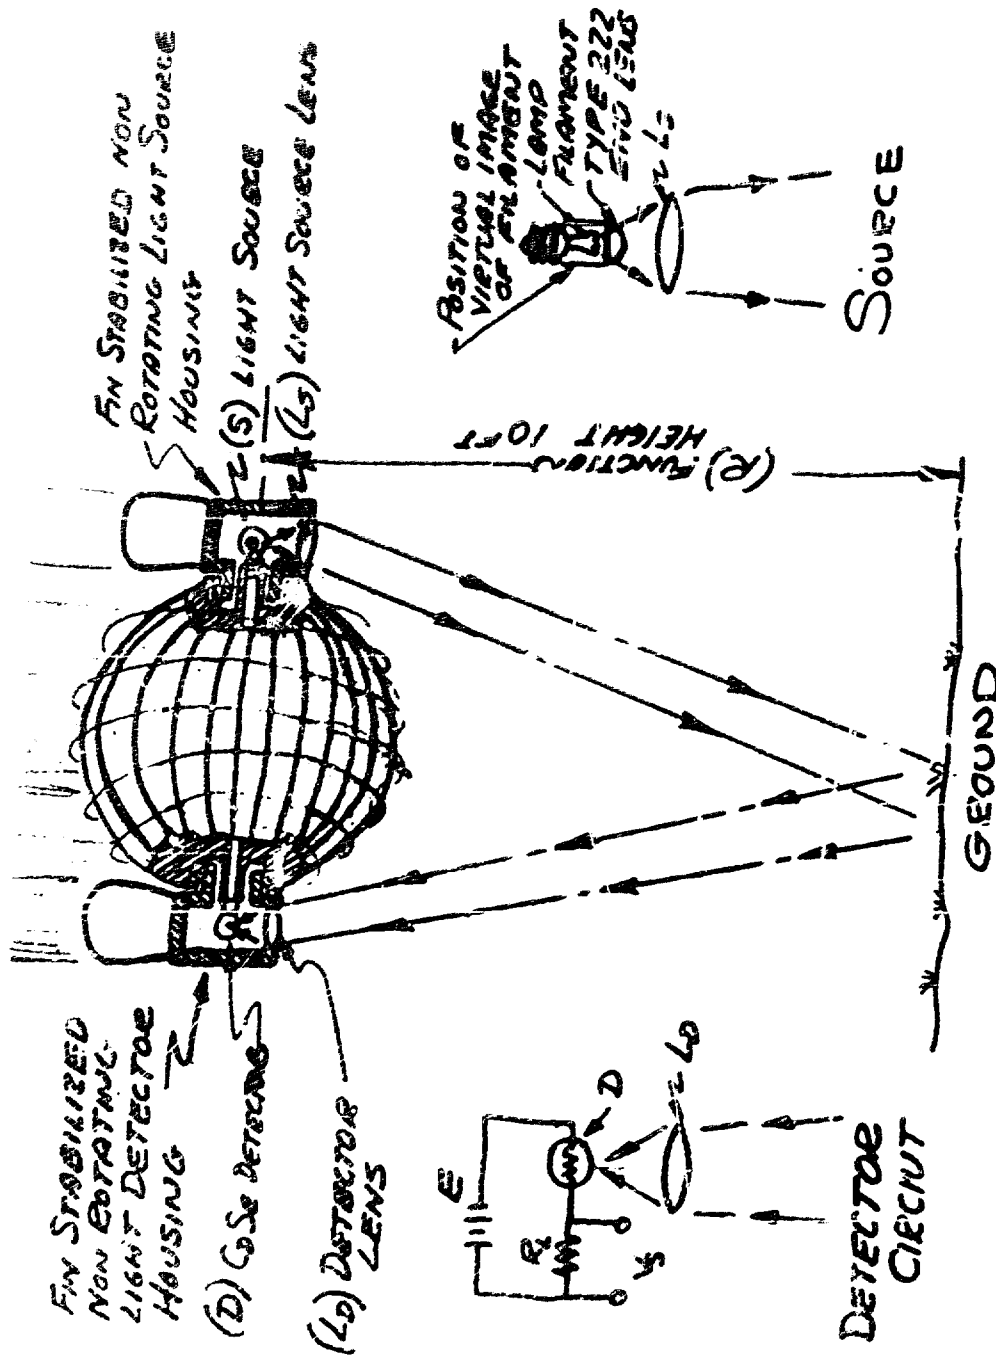 FIN STABILIZED
NON ROTATING
LIGHT DETECTOR
HOUSING
(D) CDSE DETECTOR
(LD) DETECTOR
LENS
FIN STABILIZED NON
ROTATING LIGHT SOURCE
HOUSING
(S) LIGHT SOURCE
(LS) LIGHT SOURCE LENS
(R) FUNCTION
HEIGHT 10 FT
GROUND
E
RL
VS
D
LD
DETECTOR
CIRCIUT
POSITION OF
VIRTUAL IMAGE
OF FILAMENT
LAMP
FILAMENT
TYPE 222
END LENS
LS
SOURCE